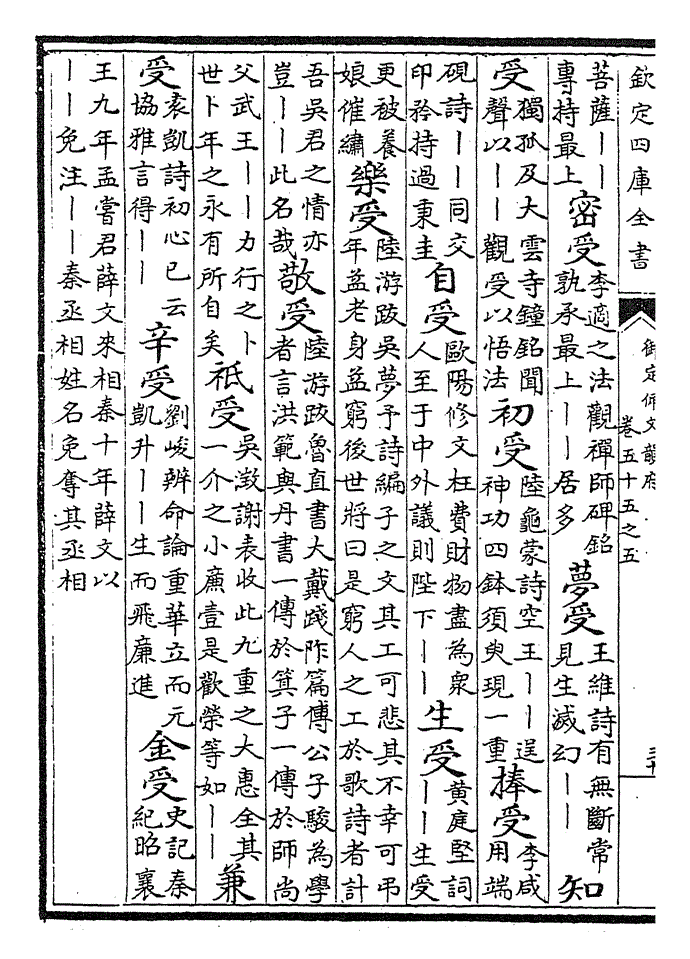 欽定四庫全書
御定佩文韻府
卷五十五之五
菩薩丨丨
專持最上
密受
李適之法觀禪師碑銘
孰承最上丨丨居多
夢受
王維詩有無斷常
見生滅幻丨丨
知
受
獨孤及大雲寺鐘銘聞
聲以丨丨觀受以悟法
初受
陸龜蒙詩空王丨丨逞
神功四鉢須臾現一重
捧受
李咸
用端
硯詩丨丨同交
印矜持過秉圭
自受
歐陽修文枉費財物盡為衆
人至于中外議則陛下丨丨
生受
黃庭堅詞
丨丨生受
更被養
娘催繡
樂受
陸游跋吳夢予詩編子之文其工可悲其不幸可弔
年益老身益窮後世將曰是窮人之工於歌詩者計
吾吳君之情亦
豈丨丨此名哉
敬受
陸游跋魯直書大戴踐阼篇傳公子駿為學
者言洪範與丹書一傳於箕子一傳於師尚
父武王丨丨力行之卜
世卜年之永有所自矣
祗受
吳澂謝表收此九重之大惠全其
一介之小廉壹是歡榮等如丨丨
兼
受
袁凱詩初心已云
協雅言得丨丨
辛受
劉峻辨命論重華立而元
凱升丨丨生而飛廉進
金受
史記秦
紀昭襄
王九年孟嘗君薛文來相秦十年薛文以
丨丨免注丨丨秦丞相姓名免奪其丞相